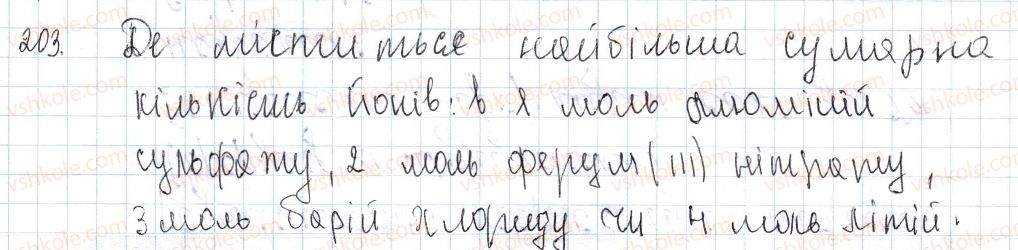 203. Де міститься найбільша сумарна
кількість йонів: в 1 моль алюміній
сульфату, 2 моль ферум (III) нітрату,
3 моль барій хлориду чи 4 моль літій.